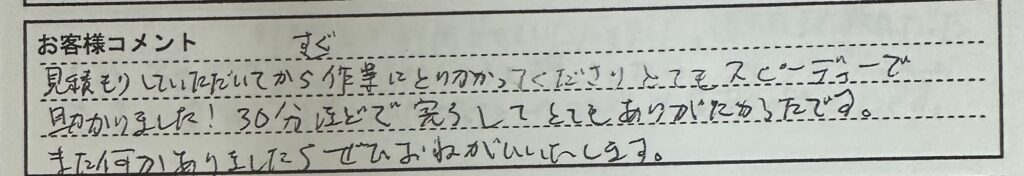 お客様コメント
すぐ
見積もりしていただいてから作業にとりかかってくださりとてもスピーディーで
助かりました！30分ほどで完了してとてもありがたかったです。
また何かありましたらぜひおねがいいたします。